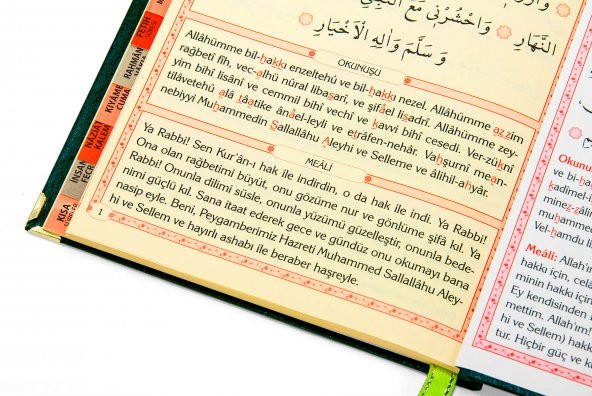 النَّهَارِ وَاحْشُرْنِي مَعَ النَّبِي
وَ سَلَّمَ وَاٰلِهِ الْاَخْيَارِ
OKUNUŞU
Allâhümme bil-hakkı enzeltehü ve bil-hakkı nezel. Allâhümme azzim
rağbetî fîh, vec-alhü nûral libasarî, ve şifâel lisadrî. Allâhümme zey-
yim bihî lisânî ve cemmil bihî vechî ve kavvi bihî cesedî. Ver-züknî
tilâvetehû alâ tâatike ânâel-leyli ve etrâfen-nehâr. Vahşurnî mean-
nebiyyi Muhammedin Sallallâhu Aleyhi ve Selleme ve âlihil-ahyâr.
MEÂLİ
Ya Rabbi! Sen Kur'ân-ı hak ile indirdin, o da hak ile indi. Ya Rabbi!
Ona olan rağbetimi büyüt, onu gözüme nur ve gönlüme şifâ kıl. Ya
Rabbi! Onunla dilimi süsle, onunla yüzümü güzelleştir, onunla bede-
nimi güçlü kıl. Sana itaat ederek gece ve gündüz onu okumayı bana
nasip eyle. Beni, Peygamberimiz Hazreti Muhammed Sallallâhu Aley-
hi ve Sellem ve hayırlı ashabı ile beraber haşreyle.
1
FETİH
RAHMAN
KIYÂME
CUMA
NÂZİÂT
KALEM
İNSAN
FECR
KISA
Okunu
ve bi-h
kadîmel-i
minez-zâli
muhamme
Vel-hamdu li
Meâli: Allah'ı
hakkı için, celâ
minin hakkı için
Ey kendisinden
mettim. Allah'ım!
hi ve Sellem) hakkı
tur. Hiçbir güç ve k